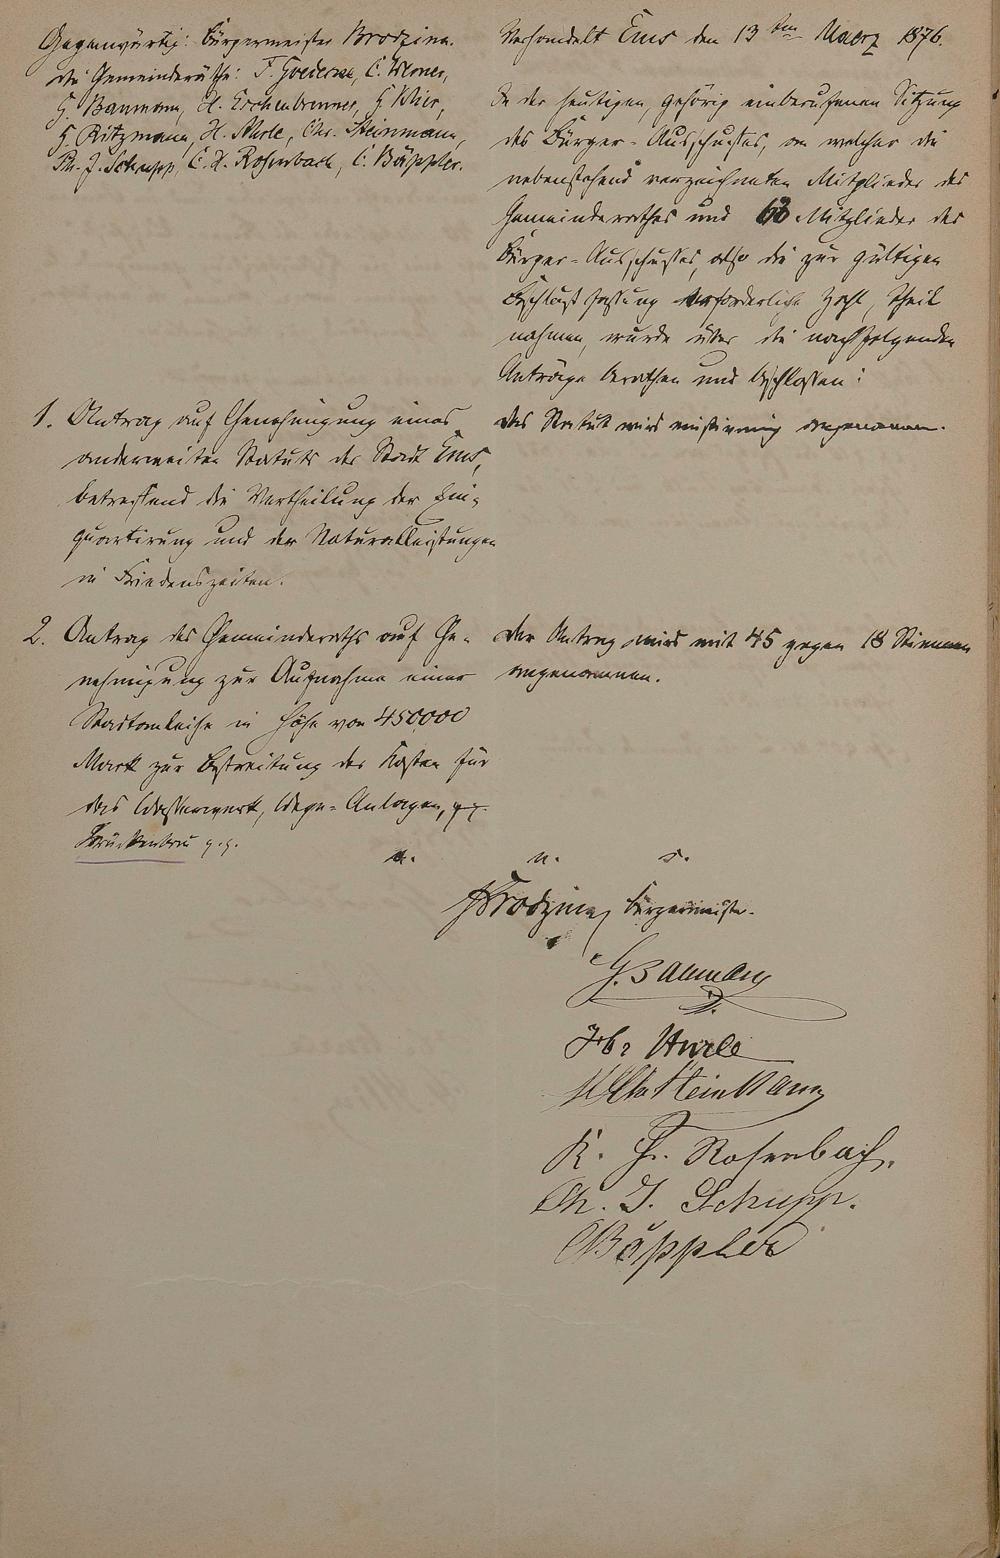 Gegenwärtig: Bürgermeister Brodzina.
die Gemeinderäthe: F. Goedecke, C. Werner,
G. Baumann, H. Eschenbrenner, G. Klier,
G. Ritzmann, H. Uhrle, Chr. Steinmann,
Ph. J. Schupp, C. H. Rosenbach, C. Bäppler.
Verhandelt Ems den 13ten Maerz 1876.
In der heutigen, gehörig einberufenen Sitzung
des Bürger-Ausschußes, an welcher die
nebenstehend verzeichneten Mitglieder des
Gemeinderathes und Mitglieder des
Bürger-Ausschußes, also die zur gültigen
Beschlußfassung erforderliche Zahl, Theil
nahmen, wurde über die nachfolgenden
Anträge berathen und beschlossen:
1. Antrag auf Genehmigung eines
anderweiten Statuts der Stadt Ems,
betreffend die Vertheilung der Ein-
quartirung und der Naturalleistungen
in Friedenszeiten.
Das Statut wird einstimmig angenommen.
2. Antrag des Gemeinderaths auf Ge-
nehmigung zur Aufnahme einer
Stadtanleihe in Höhe von 450,000
Mark zur Bestreitung der Kosten für
das Wasserwerk, Wege-Anlagen,
Brückenbau
Der Antrag wird mit 45 gegen 18 Stimmen
angenommen.
a. u. s.
Brodzina, Bürgermeister.
G. Baumann
Uhrle
Steinmann
K. H. Rosenbach.
Ph. J. Schupp.
Bäppler